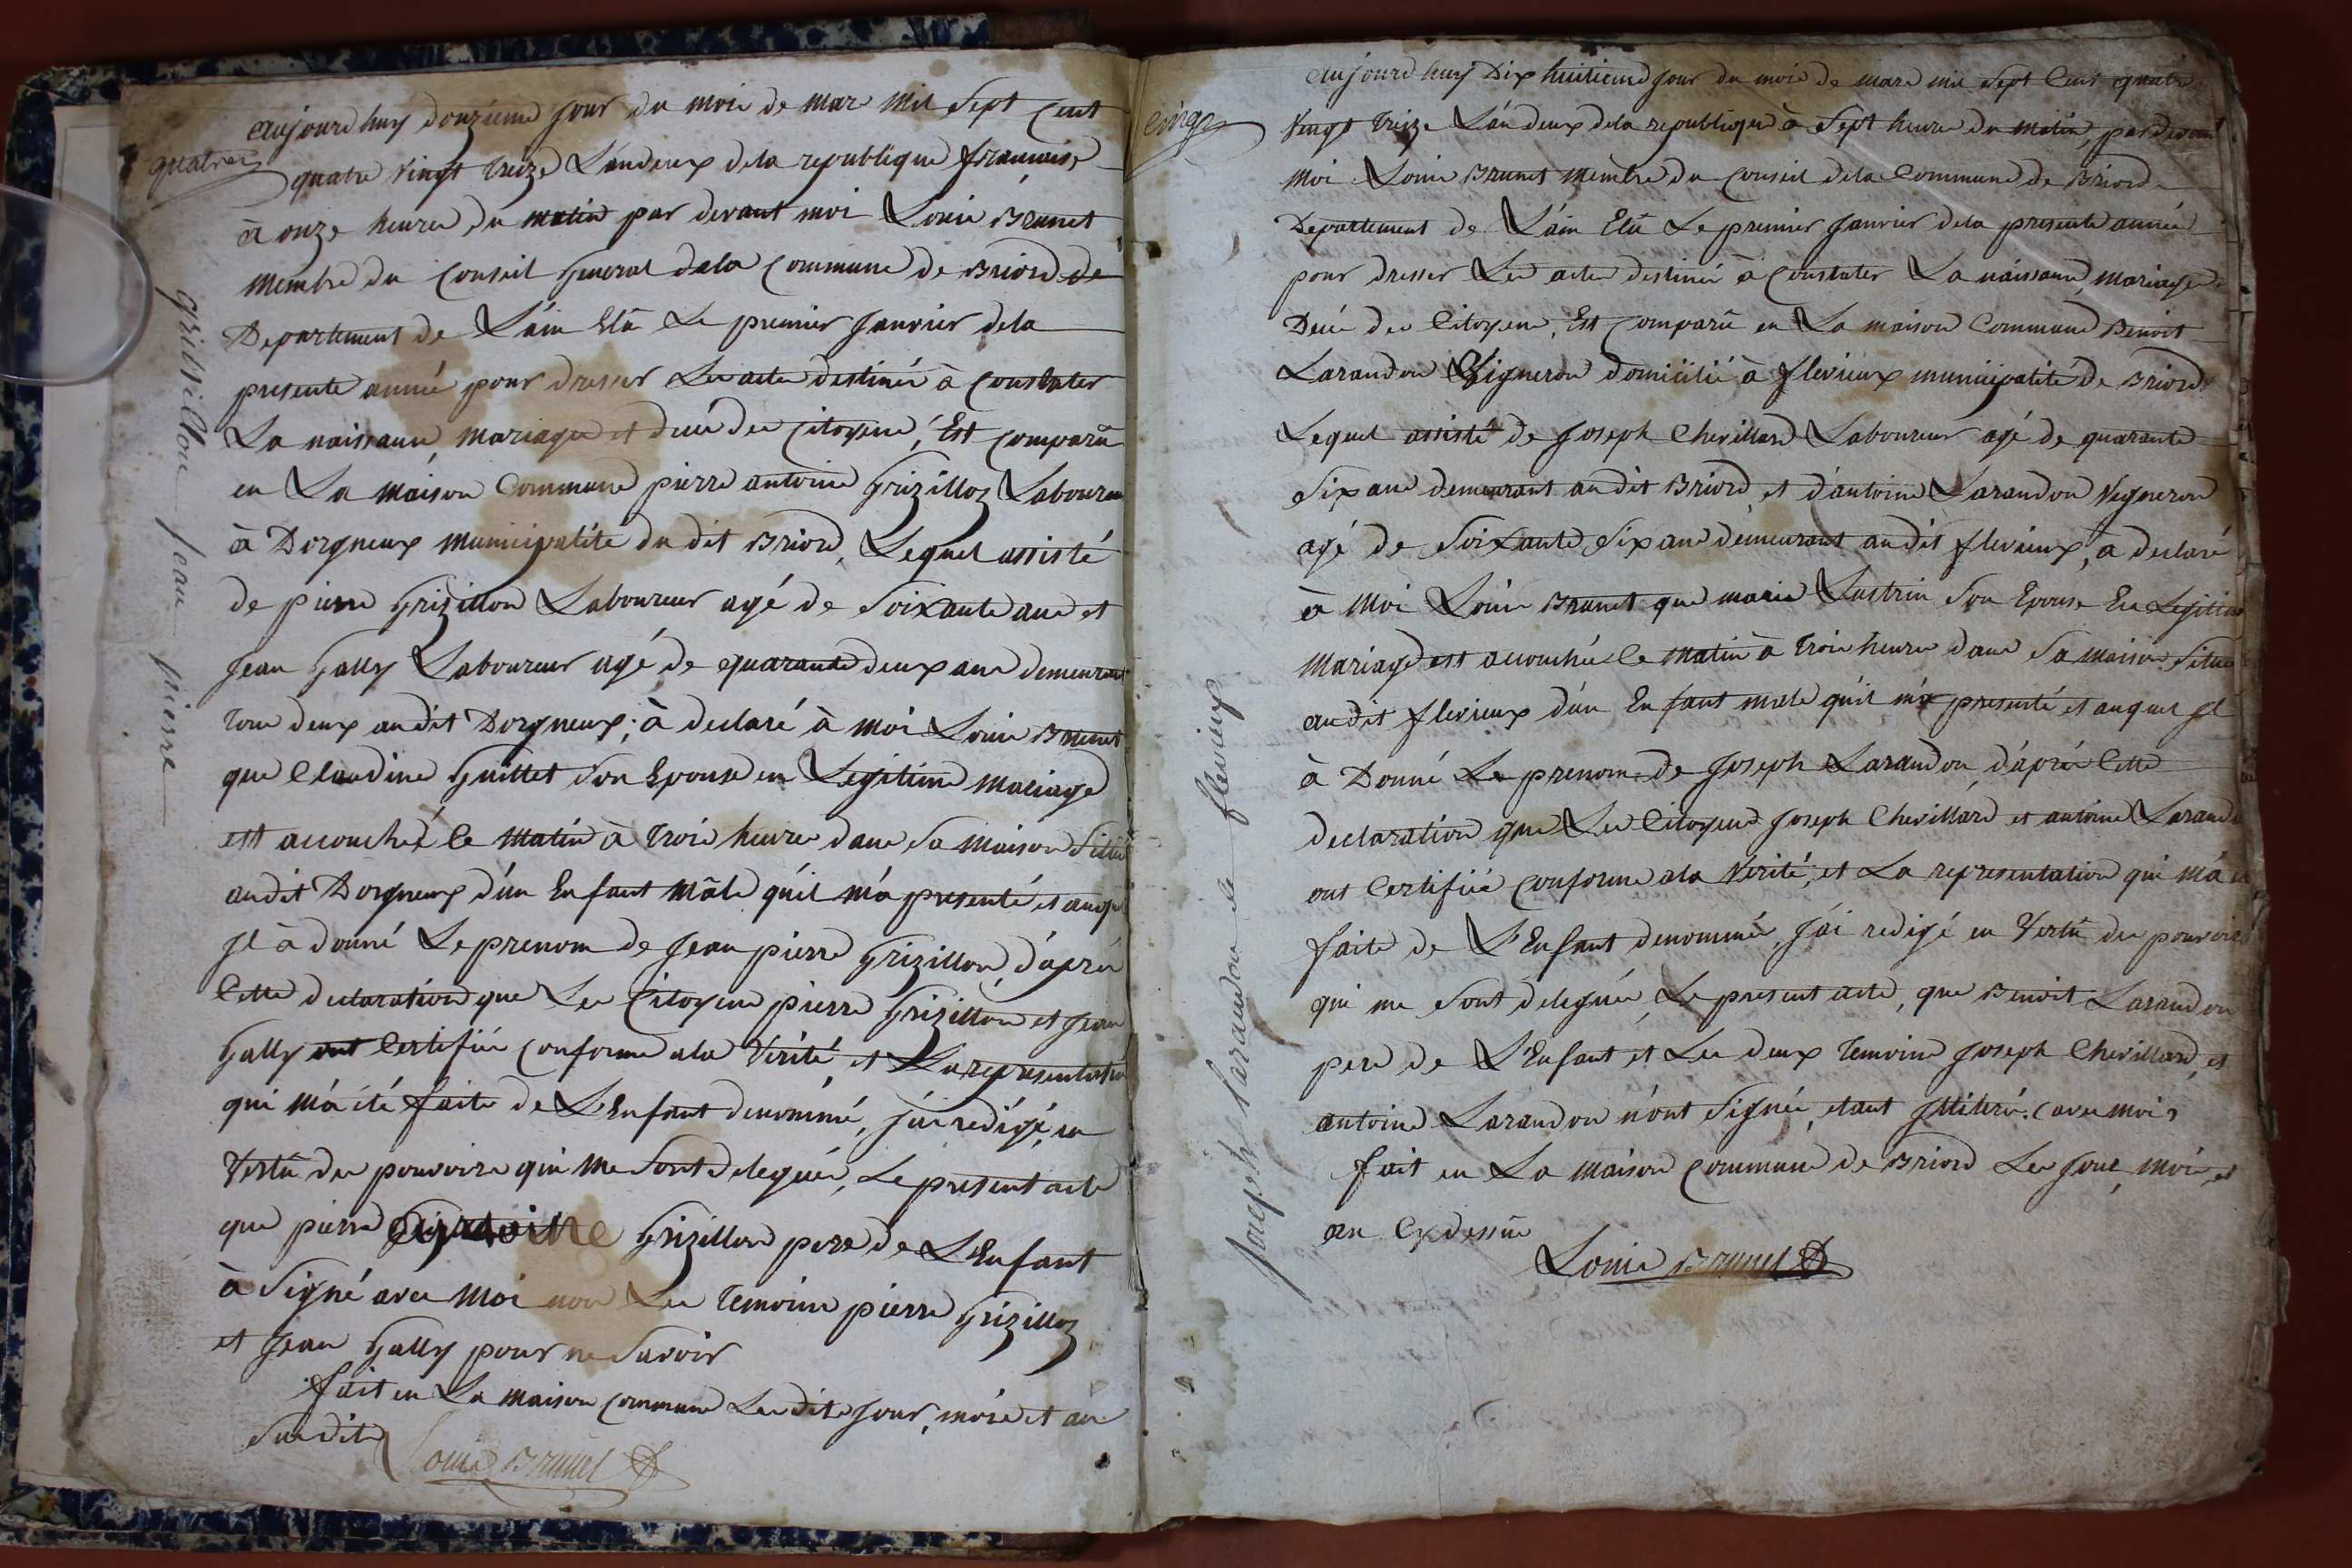 quatre
grissillon jean pierre
aujourdhuy douzieme jour du mois de mars mil sept cent
quatre vingt treize L'an deux de la republique francaise
à onze heures du matin par devant moi Louis Brunet
membre du Conseil General de la Commune de Briord de
Departement de L'ain Elû Le premier janvier de la
presente année pour dresser Les actes destinés à Constater
La naissance, mariages et decés des Citoyens, Est Comparû
en La maison Commune pierre antoine Grizilloz Laboureur
à Dorgneux municipalité du dit Briord, Lequel assisté
de pierre Grizillon Laboureur agé de soixante ans et
Jean Gally Laboureur agé de quarante deux ans demeurant
tous deux audit Dorgneux; à declaré à moi Louis Brunet
que Claudine Guittet son Epouse en Legitime mariage
est accouchée ce matin à trois heures dans sa maison située
audit Dorgneux d'un Enfant mâle qu'il m'a presenté et auquel
jl à donné Le prenom de Jean pierre Grizillon, d'aprés
Cette declaration que Les Citoyens pierre Grizillon et Jean
Gally ont Certifiés Conforme a la Vérité, et La representation
qui m'à été faite de L'Enfant denommé, j'ai redigé, en
Vertû des pouvoirs qui me sont delegués, Le present acte
que pierre antoine Grizillon pere de L'Enfant
à signé avec moi non Les temoins pierre Grizilloz
et Jean Gally pour ne savoir
fait en La maison Commune Les dits jour, mois et an
susdits
Louis Brunet
cinq
Joseph Larandon de flevieux
aujourdhuy Dix huitieme jour du mois de mars mil sept Cent quatre
vingt treize L'an deux de la republique à sept heures du matin, par devant
moi Louis Brunet membre du Conseil de la Commune de Briord
Departement de L'ain Elû Le premier janvier de la presente année
pour dresser Les actes destinés à Constater La naissance mariages
Decés des Citoyens, Est Comparû en La maison Commune Benoit
Larandon Vigneron domicilié à flevieux municipalité de Briord
Lequel assisté de Joseph Chevillard Laboureur agé de quarante
six ans demeurant audit Briord, et d'antoine Larandon Vigneron
agé de soixante six ans demeurant audit flevieux, a declaré
à moi Louis Brunet que marie Lustrin son Epouse En Legitime
mariage est accouchée ce matin à trois heures dans sa maison située
audit flevieux d'un Enfant male qu'il m'a presenté et auquel jl
à Donné Le prenom de Joseph Larandon, d'aprés Cette
declaration que Les Citoyens Joseph Chevillard et antoine Larandon
ont Certifiés Conforme a la Verité, et La representation qui m'a été
faite de L'Enfant denommé, j'ai redigé en Vertû des pouvoirs
qui me sont delegués, Le present acte, que Benoit Larandon
pere de L'Enfant et Les deux temoins Joseph Chevillard, et
antoine Larandon n'ont signés, etant jlliterés. (avec moi)
fait en La maison Commune de Briord Les jour, mois, et
an Cydessus
Louis Brunet